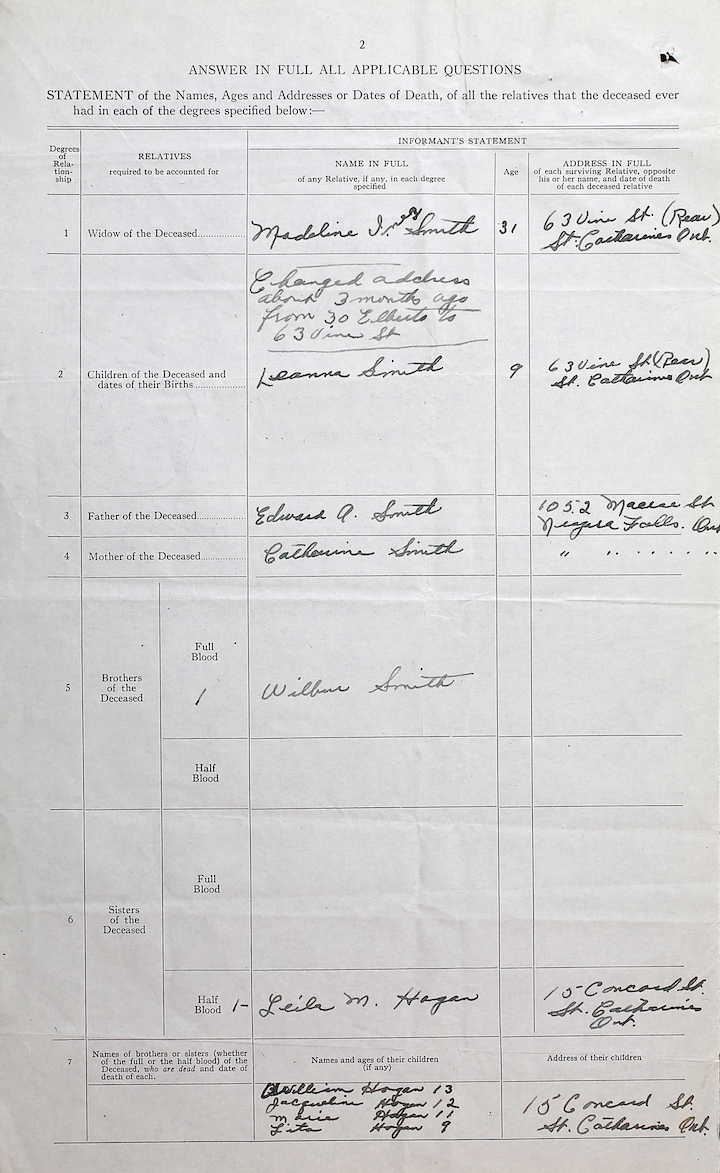 2
ANSWER IN FULL ALL APPLICABLE QUESTIONS
STATEMENT of the Names, Ages and Addresses or Dates of Death, of all the relatives that the deceased ever
had in each of the degrees specified below:—
Degrees
of
Rela-
tion-
ship
RELATIVES
required to be accounted for
INFORMANT'S STATEMENT
NAME IN FULL
of any Relative, if any, in each degree
specified
Age
ADDRESS IN FULL
of each surviving Relative, opposite
his or her name, and date of death
of each deceased relative
1
Widow of the Deceased
Madeline Smith
31
63 Vine St. (Rear)
St. Catharines Ont.
Changed address
about 3 months ago
from 30 to
63 Vine St
2
Children of the Deceased and
dates of their Births
Leanna Smith
9
63 Vine St (Rear)
St. Catharines Ont
3
Father of the Deceased
Edward A. Smith
1052 St
Niagara Falls. Ont
4
Mother of the Deceased
Catherine Smith
" " . . . . . ..
5
Brothers
of the
Deceased
Full
Blood
1
Wilbur Smith
Half
Blood
6
Sisters
of the
Deceased
Full
Blood
Half
Blood 1-
Leila M. Hogan
15 Concord St.
St. Catharines
Ont.
7
Names of brothers or sisters (whether
of the full or the half blood) of the
Deceased, who are dead and date of
death of each.
Names and ages of their children
(if any)
Address of their children
William Hogan 13
Jacqueline Hogan 12
Marie Hogan 11
Lita Hogan 9
15 Concord St.
St. Catharines Ont.